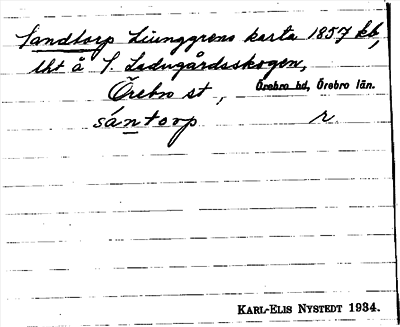 Sandtorp Ljunggrens karta 1857 kb,
lht å S. Ladugårdsskogen,
Örebro st, Örebro hd, Örebro län.
sántorp r.
KARL-ELIS NYSTEDT 1934.